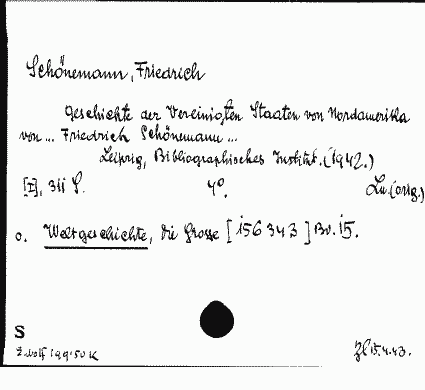 Schönemann, Friedrich
Geschichte der Vereinigten Staaten von Nordamerika
von ... Friedrich Schönemann ...
Leipzig, Bibliographisches Institut. (1942.)
[I], 311 S. 4°. Lw. (orig.)
o. Weltgeschichte, Die Grosse [156 343] Bd. 15.
S
Z. Wolf 199.50 K 15.4.43.